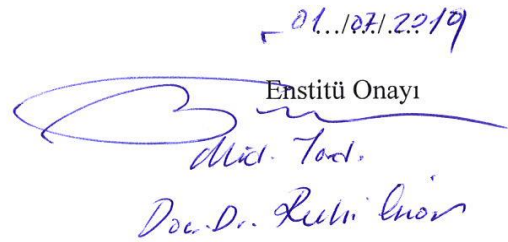 01.../07/.2019
Enstitü Onayı
Müd. Yard.
Doç. Dr. Ruhi